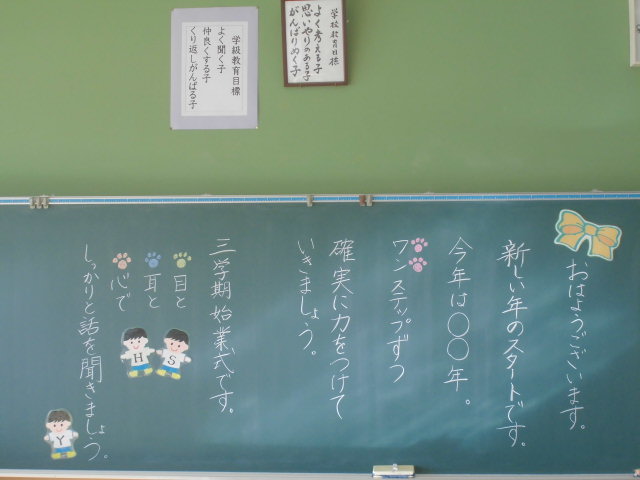 学校教育目標
よく考える子
思いやりのある子
がんばりぬく子
学級教育目標
よく聞く子
仲良くする子
くり返しがんばる子
おはようございます。
新しい年のスタートです。
今年は〇〇年。
ワンステップずつ
確実に力をつけて
いきましょう。
三学期始業式です。
目と
耳と
心で
しっかりと話を聞きましょう。
H
S
Y